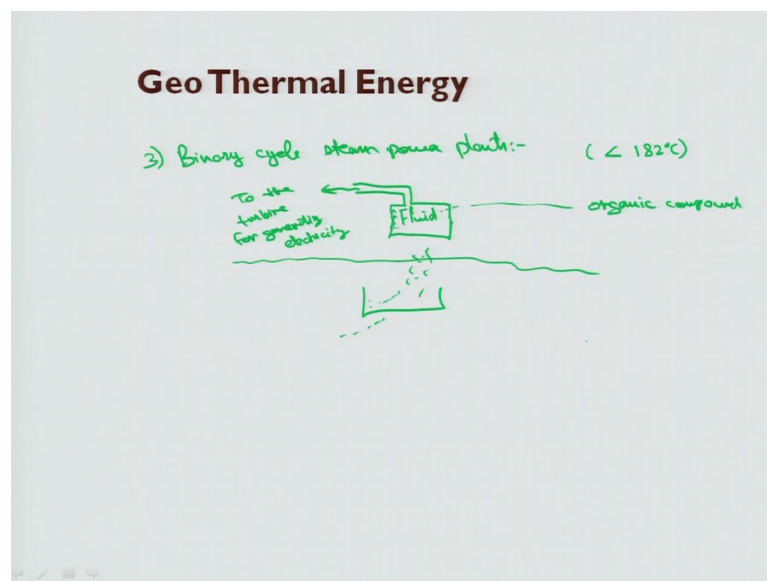 Geo Thermal Energy
3) Binary cycle steam power plants:- ( < 182°C)
To the
turbine
for generating
electricity
Fluid
organic compound